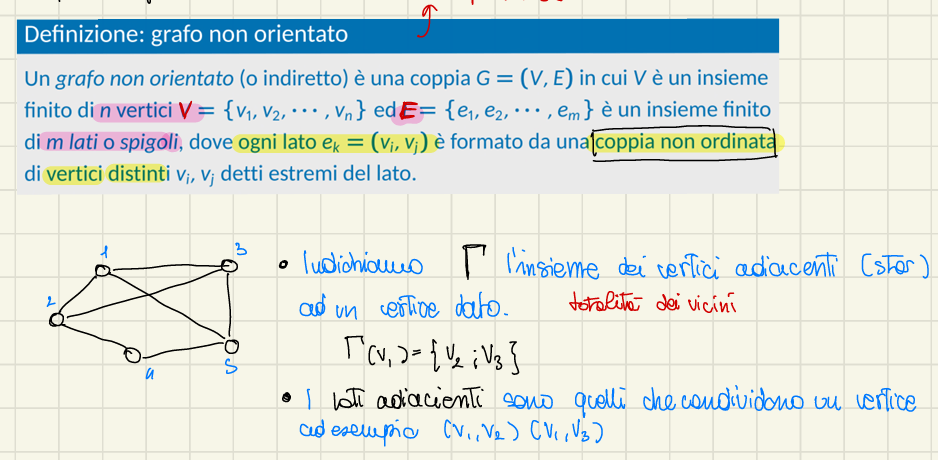 Definizione: grafo non orientato
Un grafo non orientato (o indiretto) è una coppia G = (V, E) in cui V è un insieme
finito di n vertici V = {v₁, v₂, ⋯ , vₙ} ed E = {e₁, e₂, ⋯ , eₘ} è un insieme finito
di m lati o spigoli, dove ogni lato eₖ = (vᵢ, vⱼ) è formato da una coppia non ordinata
di vertici distinti vᵢ, vⱼ detti estremi del lato.
1
3
2
4
5
• Indichiamo Γ l'insieme dei vertici adiacenti (star)
ad un vertice dato. totalità dei vicini
Γ(v₁) = {v₂ ; v₃}
• I lati adiacienti sono quelli che condividono un vertice
ad esempio (v₁, v₂) (v₁, v₃)